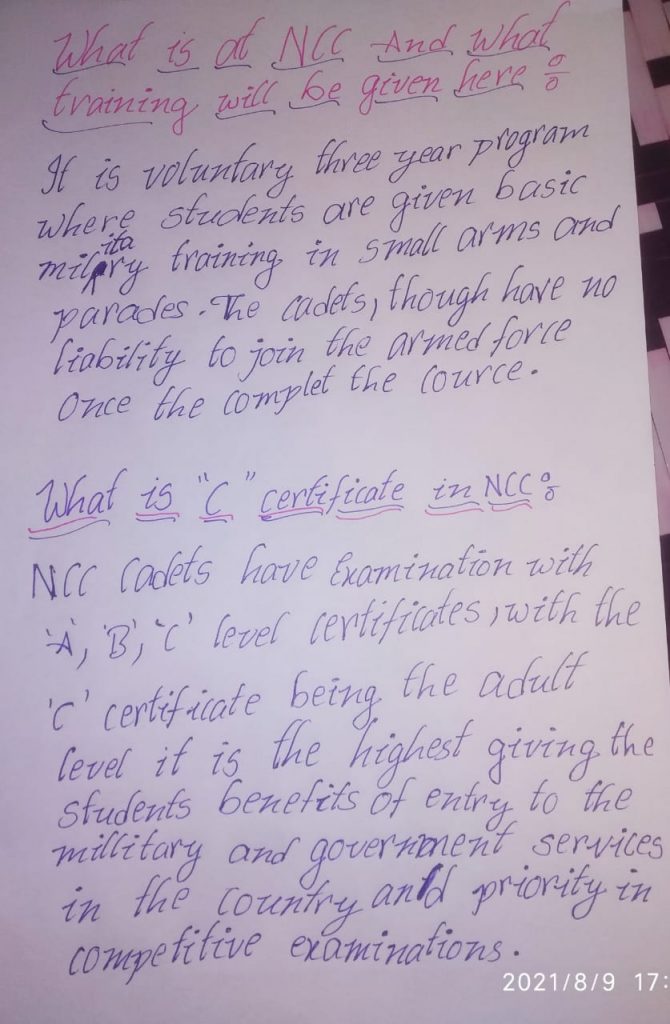 What is at NCC And what
training will be given here :
It is voluntary three year program
where students are given basic
military training in small arms and
parades. The cadets, though have no
liability to join the armed force
Once the complet the cource.
What is "C" certificate in NCC :
NCC Cadets have Examination with
'A', 'B', 'C' level certificates, with the
'C' certificate being the adult
level it is the highest giving the
students benefits of entry to the
millitary and government services
in the country and priority in
competitive examinations.
2021/8/9 17: